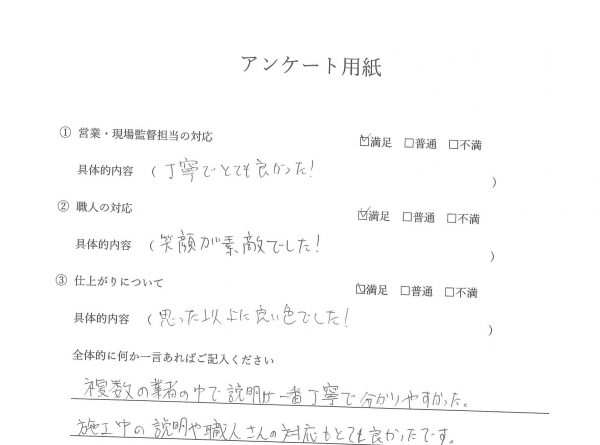 アンケート用紙
① 営業・現場監督担当の対応 ☑満足 □普通 □不満
具体的内容 (丁寧でとても良かった! )
② 職人の対応 ☑満足 □普通 □不満
具体的内容 (笑顔が素敵でした! )
③ 仕上がりについて ☑満足 □普通 □不満
具体的内容 (思った以上に良い色でした! )
全体的に何か一言あればご記入ください
複数の業者の中で説明は一番丁寧で分かりやすかった。
施工中の説明や職人さんの対応もとても良かったです。